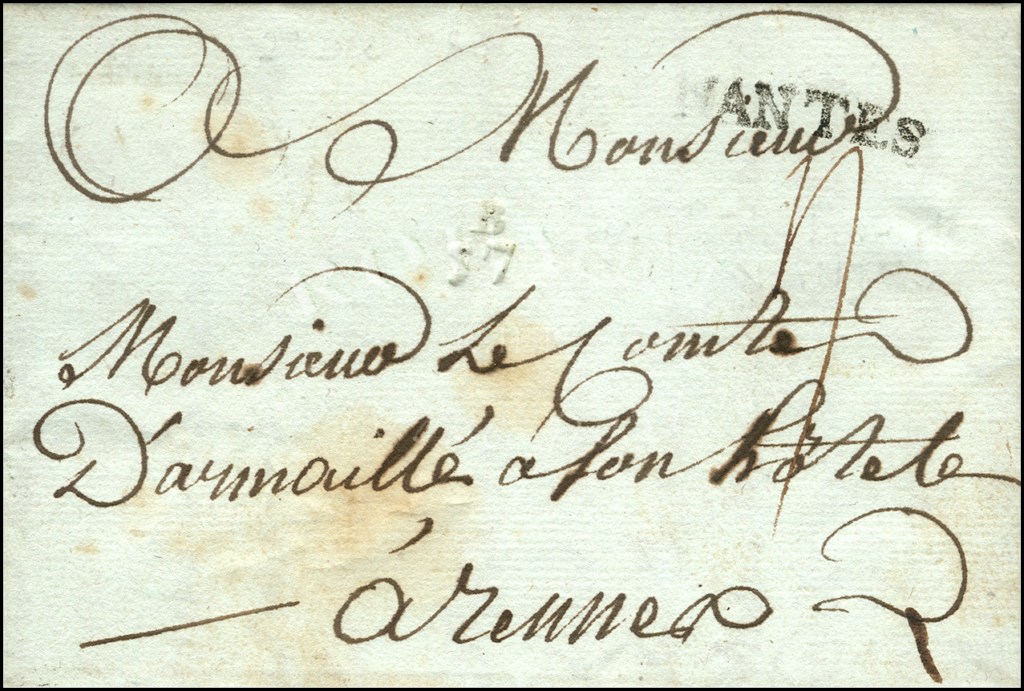 NANTES
Monsieur
B
57
Monsieur Le Comte
Darmaillé a son hôtel
à rennes